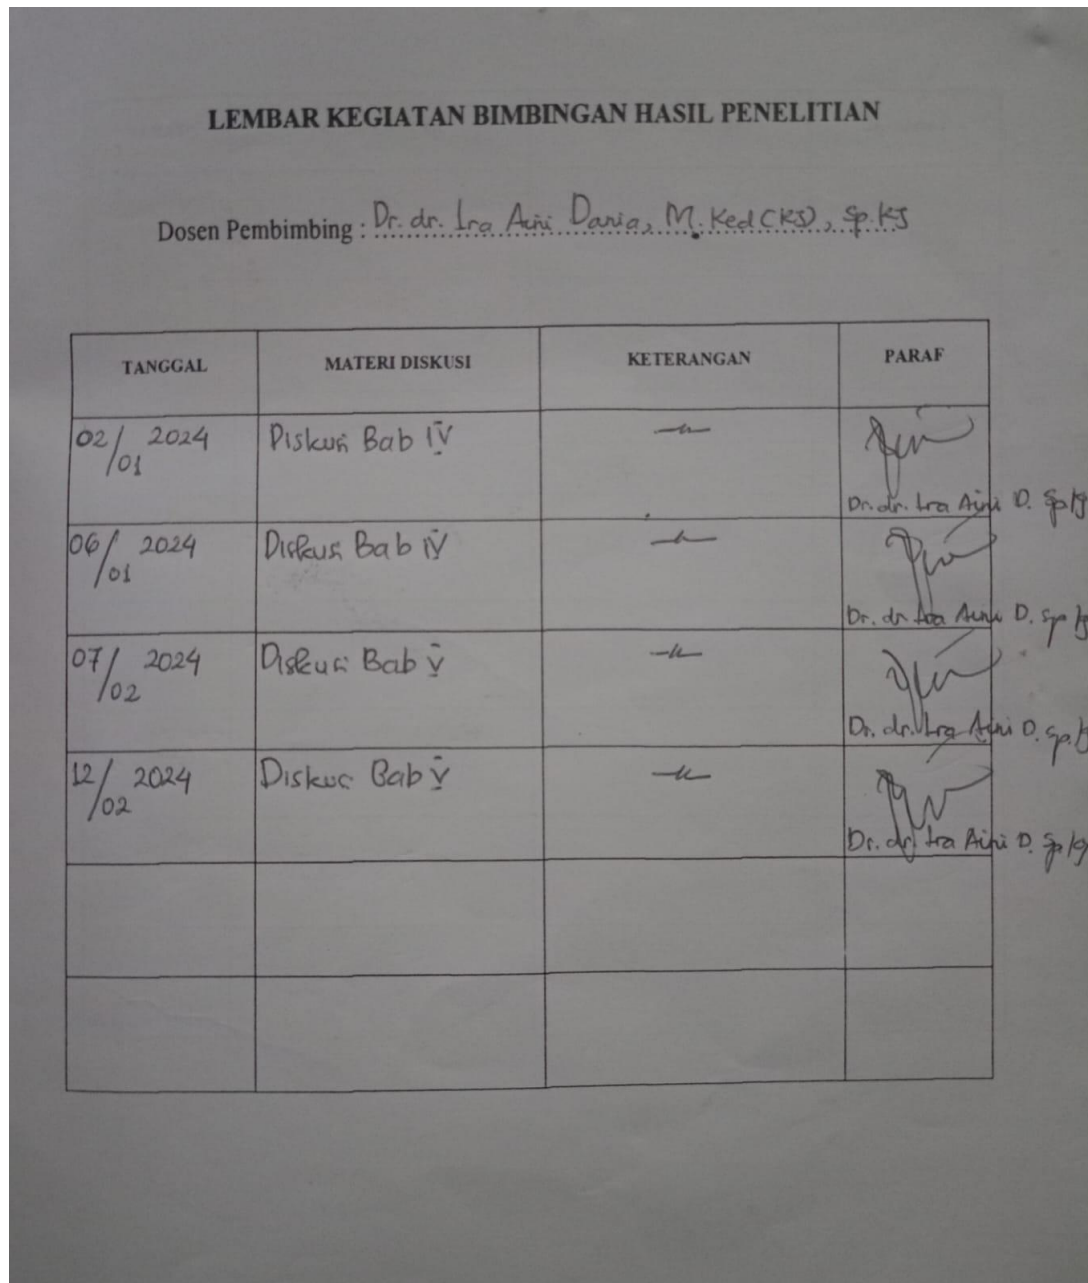 LEMBAR KEGIATAN BIMBINGAN HASIL PENELITIAN
Dosen Pembimbing : Dr. dr. Ira Aini Dania, M. Ked (KJ), Sp. KJ
TANGGAL MATERI DISKUSI KETERANGAN PARAF
02/01 2024 Diskusi Bab IV
Dr. dr. Ira Aini D. Sp.KJ
06/01 2024 Diskusi Bab IV
Dr. dr. Ira Aini D. Sp.KJ
07/02 2024 Diskusi Bab V
Dr. dr. Ira Aini D. Sp.KJ
12/02 2024 Diskusi Bab V
Dr. dr. Ira Aini D. Sp.KJ